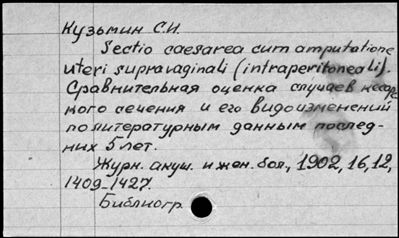 Кузьмин С.И.
Sectio caesarea cum amputatione
uteri supravaginali (intraperitoneali).
Сравнительная оценка случаев кесарс-
кого сечения и его видоизменений
по литературным данным послед-
них 5 лет.
Журн. акуш. и жен. бол., 1902, 16, 12,
1409-1427.
Библиогр.